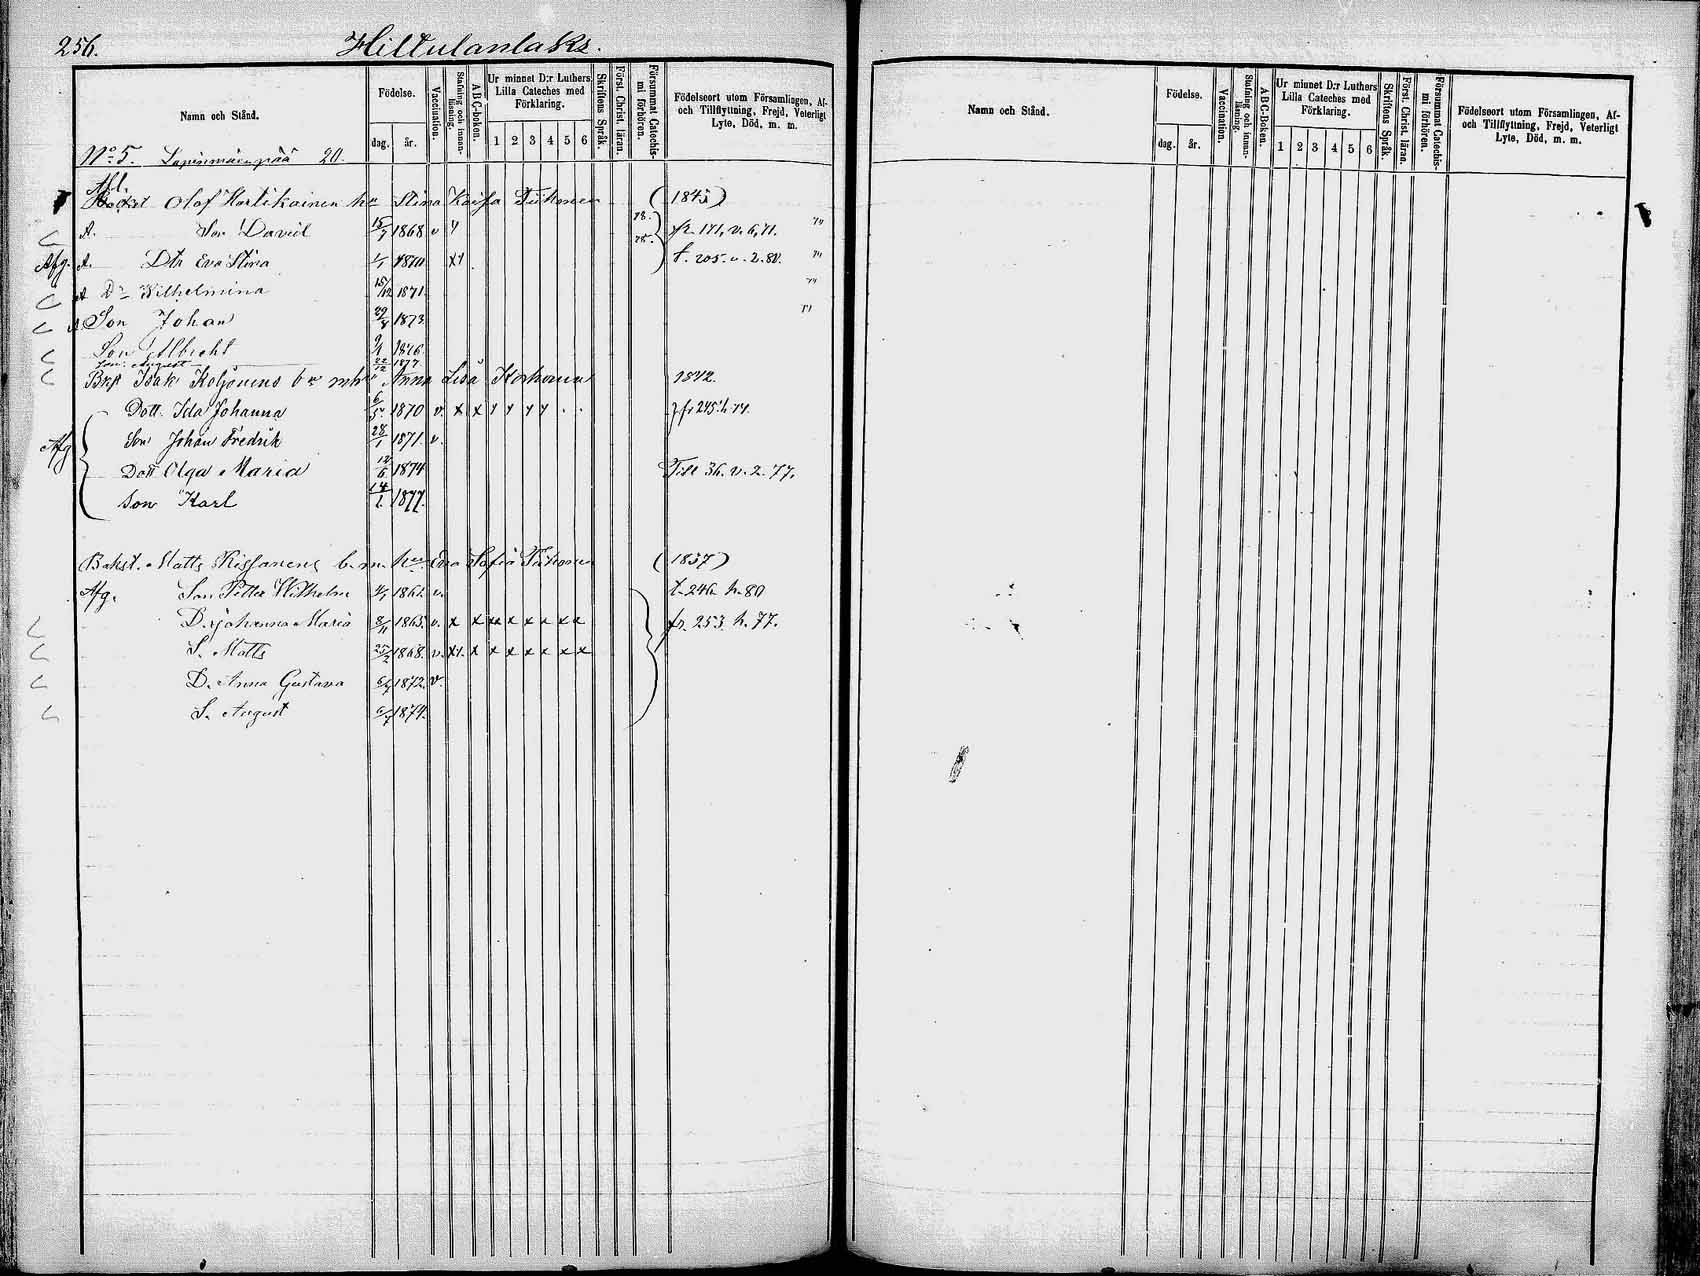 256. Hiltulanlaks.
Namn och Stånd. Födelse. dag. år. Vaccination. Stafning och innanläsning. A B C-boken. Ur minnet D:r Luthers Lilla Cateches med Förklaring. 1 2 3 4 5 6 Skriftens Språk. Först. Christ. läran. Försummat Catechismi förhören. Födelseort utom Församlingen, Af- och Tillflyttning, Frejd, Veterligt Lyte, Död, m. m.
Namn och Stånd. Födelse. dag. år. Vaccination. Stafning och innanläsning. A B C-Boken. Ur minnet D:r Luthers Lilla Cateches med Förklaring. 1 2 3 4 5 6 Skriftens Språk. Först. Christ. läran. Försummat Catechismi förhören. Födelseort utom Församlingen, Af- och Tillflyttning, Frejd, Veterligt Lyte, Död, m. m.
No 5. 20.
Olof Kartikainen hu Stina Kaisa Tiihonen (1845)
A. Son David 15/7 1868 v y 78. fr. 171, v. 6, 71.
Afg. A. Dtr Eva Stina 1870 x1 t. 205. v. 2. 80.
A Dr Wilhelmina 15/12 1871.
Son Johan 29/8 1873
Son Albrecht 9/1 1876
Son August 22/12 1877
Bkst Isak Koljonens Anna Lisa Korhonen 1842.
Dott. Ida Johanna 6/5 1870 v. x x y y y y . . fr 245 h. 77.
Afg Son Johan Fredrik 28/1 1871 v.
Dott Olga Maria 12/6 1874 Till 36. v. 2. 77.
Son Karl 14/1 1877.
Bakst. Matts Rissanens b. m. hu Eva Sofia Tiihonen (1837)
Afg. Son Petter Wilhelm 4/1 1861. v. t. 246 h. 80
D. Johanna Maria 8/11 1865. v. x x xx x x x x x fr. 253 h. 77.
S. Matts 25/2 1868. v. x1. x x x x x x x
D. Anna Gustava 1872. v.
S. August 6/7 1874.